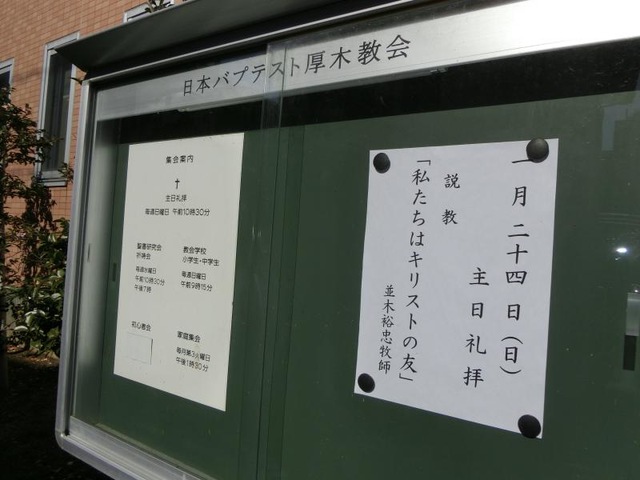 日本バプテスト厚木教会
集会案内
主日礼拝
毎週日曜日 午前10時30分
聖書研究会
祈祷会
毎週水曜日
午前10時30分
午後7時
教会学校
小学生・中学生
毎週日曜日
午前9時15分
初心者会
家庭集会
毎月第3火曜日
午後1時30分
一月二十四日(日)
主日礼拝
説教
「私たちはキリストの友」
並木裕忠牧師